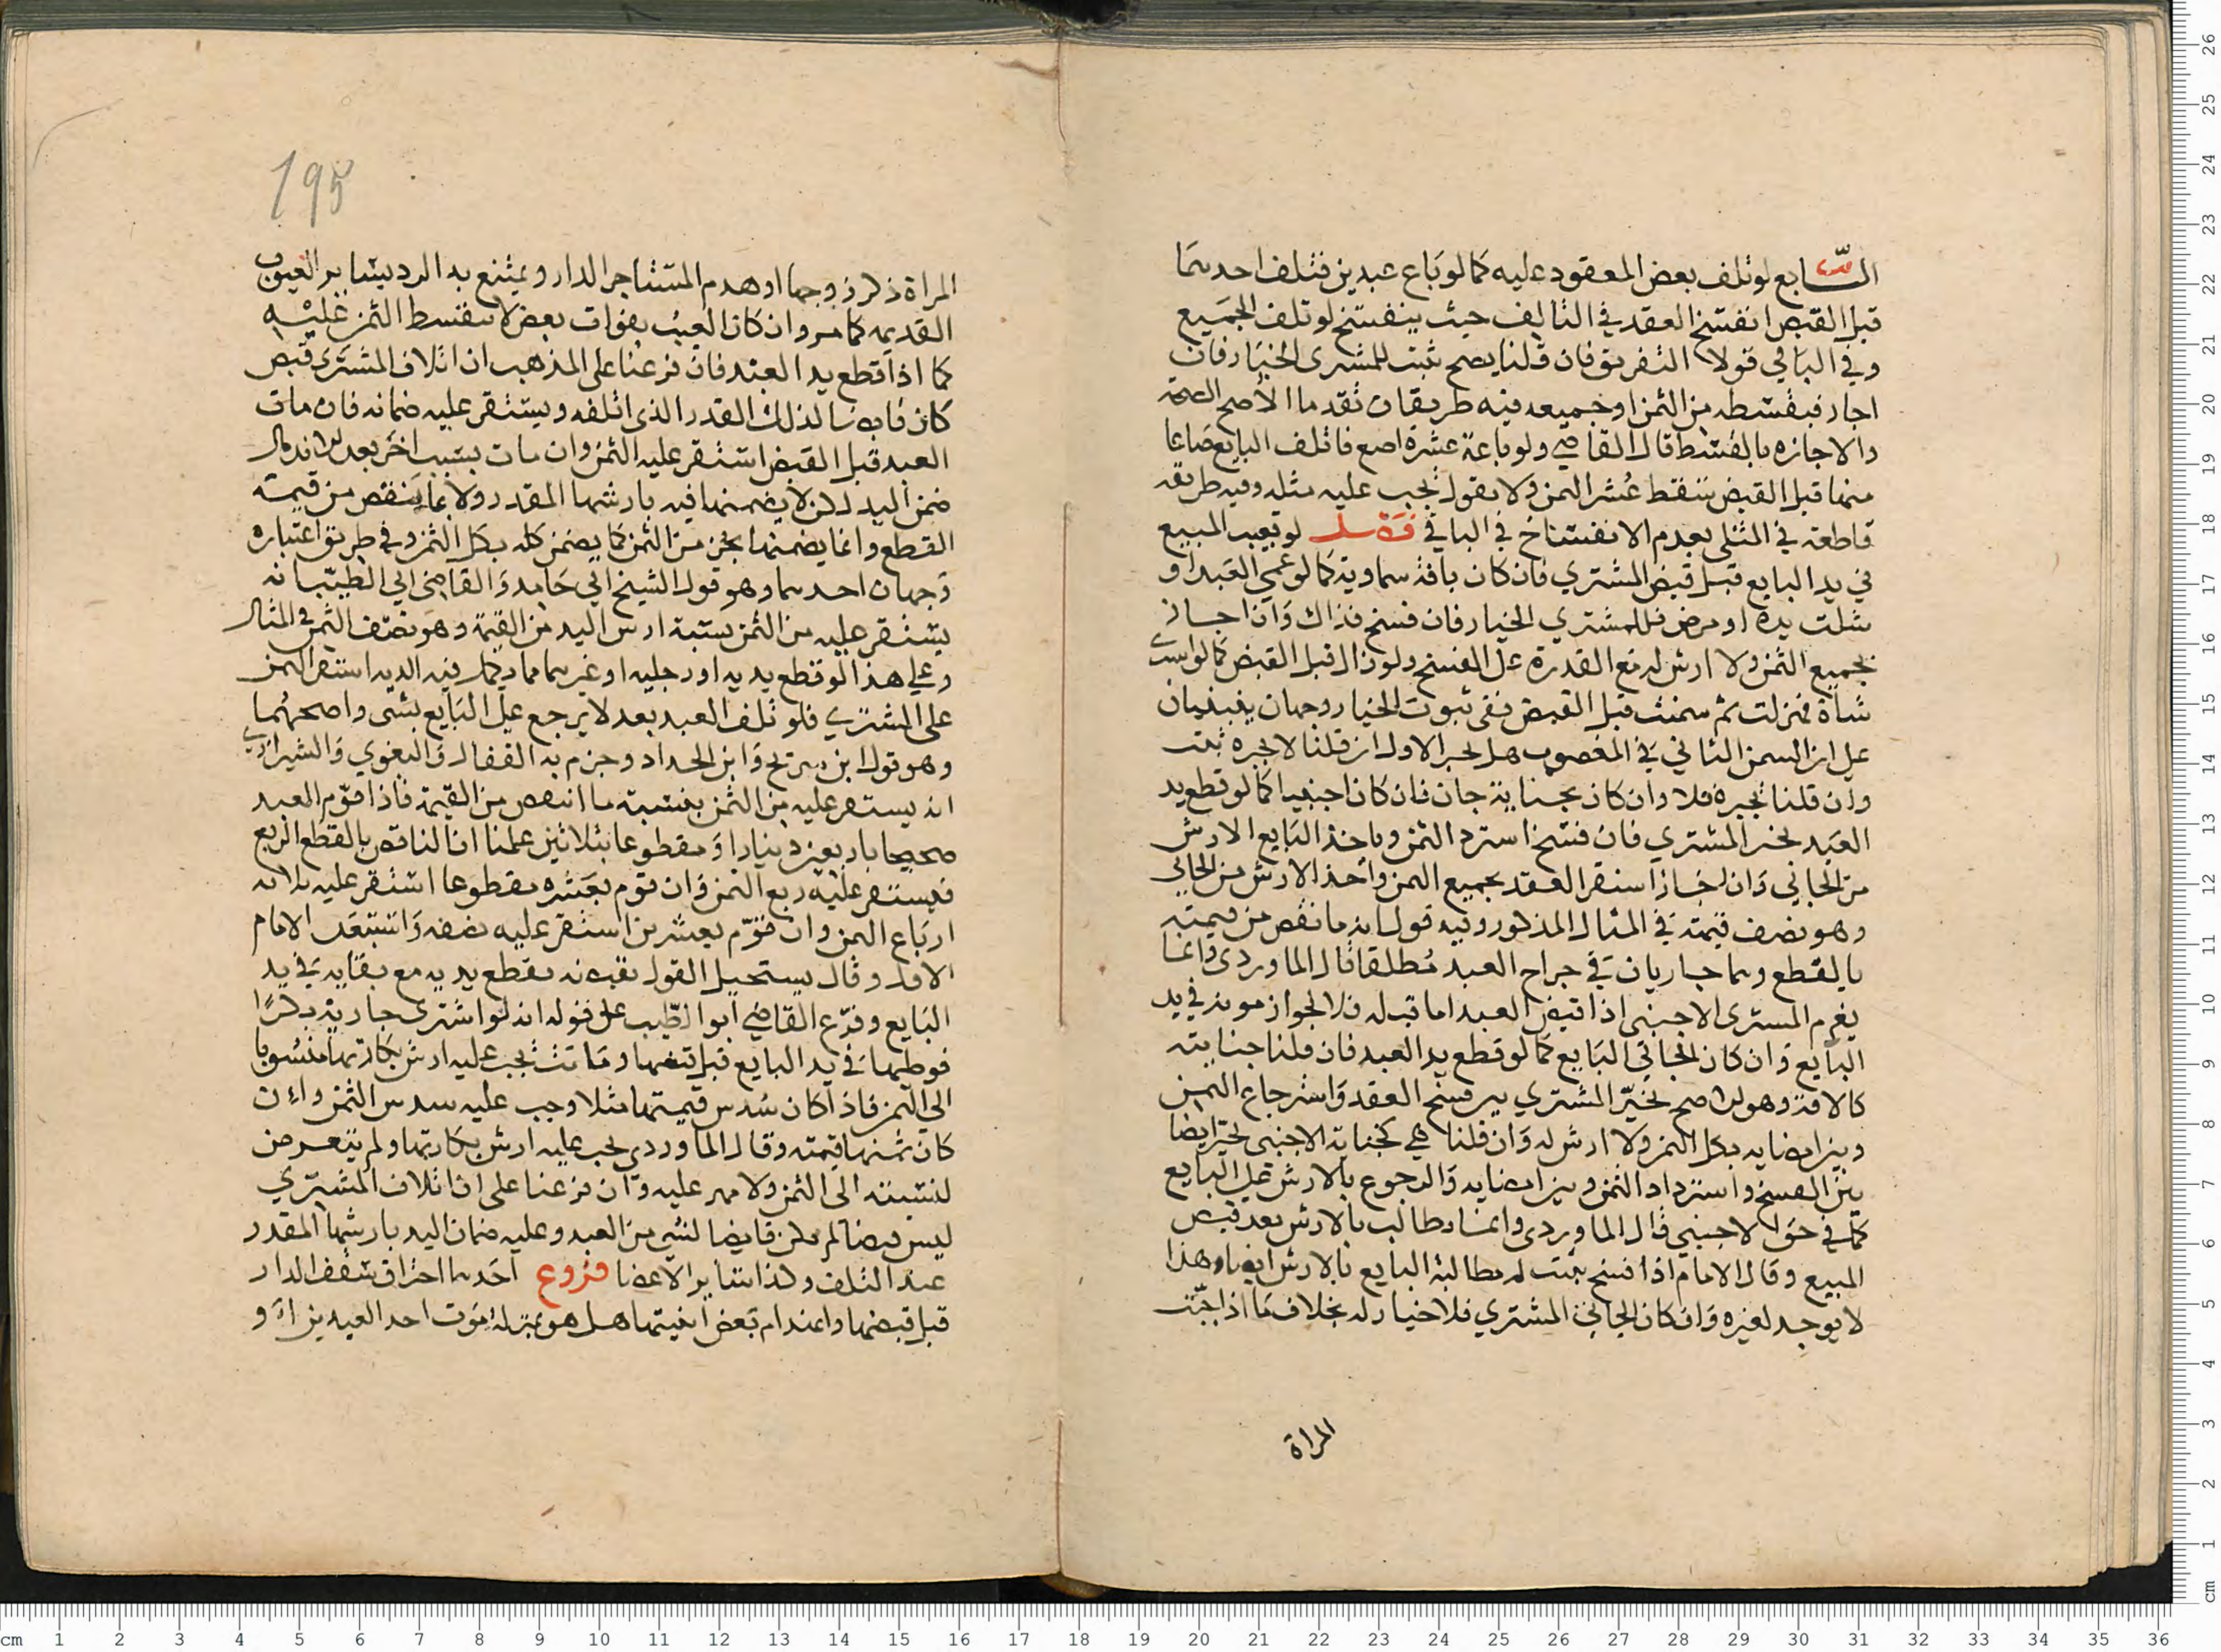 السابع لو تلف بعض المعقود عليه كما لو باع عبدين فتلف احدهما
قبل القبض انفسخ العقد في التالف حيث ينفسخ لو تلف الجميع
وفي الباقي قولا التفريق فان قلنا يصح ثبت للمشتري الخيار فان
اجاز فبقسطه من الثمن او جميعه فيه طريقان تقدما الأصح الصحة
والاجازه بالقسط قال القاضي ولو باعه عشرة اصع فاتلف البايع صاعا
منها قبل القبض سقط عشر الثمن ولا يقول يجب عليه مثله وفيه طريقه
قاطعة في المثلي بعدم الانفساخ في الباقي فصل لو تعيب المبيع
في يد البايع قبل قبض المشتري فان كان بافة سماوية كما لو عمي العبد او
شلت يده او مرض فللمشتري الخيار فان فسخ فذاك وان اجاز
بجميع الثمن ولا ارش له مع القدرة على الفسخ ولو زال قبل القبض كما لو اشترى
شاة فهزلت ثم سمنت قبل القبض ففي ثبوت الخيار وجهان ينبنيان
على ان السمن الثاني في المغصوب هل يجبر الاول ان قلنا لا يجبره ثبت
وان قلنا يجبره فلا وان كان بجناية جان فان كان اجنبيا كما لو قطع يد
العبد تخير المشتري فان فسخ استرد الثمن وياخذ البايع الارش
من الجاني وان اجاز استقر العقد بجميع الثمن واخذ الارش من الجاني
وهو نصف قيمته في المثال المذكور وفيه قول انه ما نقص من قيمته
بالقطع وهما جاريان في جراح العبد مطلقا قال الماوردي وانما
يغرم المشتري الاجنبي اذا قبض العبد اما قبله فلا لجواز موته في يد
البايع وان كان الجاني البايع كما لو قطع يد العبد فان قلنا جنايته
كالافة وهو الاصح تخير المشتري بين فسخ العقد واسترجاع الثمن
وبين امضايه بكل الثمن ولا ارش له وان قلنا هي كجناية الاجنبي تخير ايضا
بين الفسخ واسترداد الثمن وبين امضايه والرجوع بالارش على البايع
كما في حق الاجنبي قال الماوردي وانما يطالب بالارش بعد قبض
المبيع وقال الامام اذا فسخ ثبت له مطالبة البايع بالارش ايضا وهذا
لا يوجد لغيره وان كان الجاني المشتري فلا خيار له بخلاف ما اذا جبت
المراة
195
المراة ذكر زوجها او هدم المستاجر الدار ويمتنع به الرد بساير العيوب
القديمه كما مر وان كان العيب بفوات بعض لا يتقسط الثمن عليه
كما اذا قطع يد العبد فان فرعنا على المذهب ان اتلاف المشتري قبض
كان قابضا لذلك القدر الذي اتلفه ويستقر عليه ضمانه فان مات
العبد قبل القبض استقر عليه الثمن وان مات بسبب اخر بعد الاندمال
ضمن اليد لكن لا يضمنها فيه بارشها المقدر ولا بما ينقص من قيمته
القطع وانما يضمنها بجزء من الثمن كما يضمن كله بكل الثمن وفي طريق اعتباره
وجهان احدهما وهو قول الشيخ ابي حامد والقاضي ابي الطيب انه
يستقر عليه من الثمن بنسبة ارش اليد من القيمة وهو نصف الثمن في المثال
وعلى هذا لو قطع يديه او رجليه او غيرهما مما يكمل فيه الديه استقر الثمن
على المشتري فلو تلف العبد بعد لا يرجع على البايع بشي واصحهما
وهو قول ابن سريج وابن الحداد وجزم به القفال والبغوي والشيرازي
انه يستقر عليه من الثمن بنسبة ما انتقص من القيمة فاذا قوم العبد
صحيحا باربعين دينارا ومقطوعا بثلاثين علمنا ان الناقص بالقطع الربع
فيستقر عليه ربع الثمن وان قوم بعشره مقطوعا استقر عليه ثلاثه
ارباع الثمن وان قوم بعشرين استقر عليه نصفه واستبعد الامام
الاول وقال يستحيل القول بقبضه بقطع يديه مع بقايه في يد
البايع وفرع القاضي ابو الطيب على قوله انه لو اشترى جارية بكرا
فوطيها في يد البايع قبل قبضها وماتت يجب عليه ارش بكارتها منسوبا
الى الثمن فاذا كان سدس قيمتها مثلا وجب عليه سدس الثمن وان
كان ثمنها قيمته وقال الماوردي يجب عليه ارش بكارتها ولم يتعرض
لنسبته الى الثمن ولا مهر عليه وان فرعنا على ان اتلاف المشتري
ليس قبضا لم يكن قابضا لشي من العبد وعليه ضمان اليد بارشها المقدر
عند التلف وكذا ساير الاعضا فروع احدها احتراق سقف الدار
قبل قبضها وانهدام بعض ابنيتها هل هو بمنزلة موت احد العبدين او